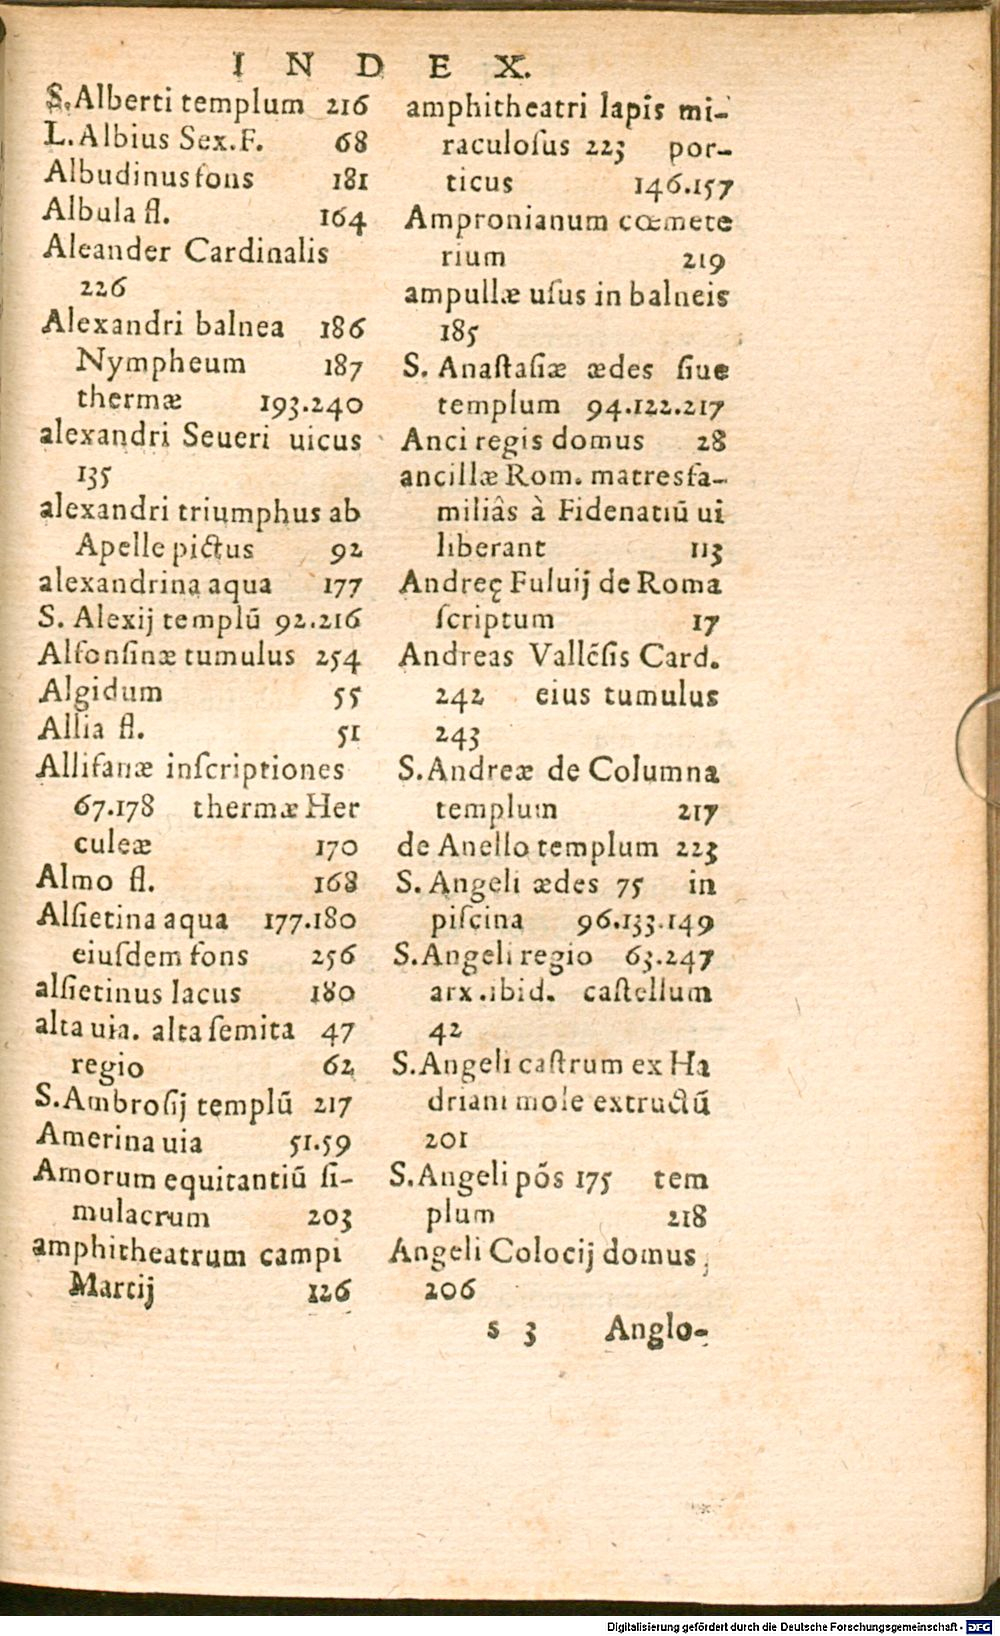 INDEX.
S. Alberti templum 216
L. Albius Sex. F. 68
Albudinus fons 181
Albula fl. 164
Aleander Cardinalis
226
Alexandri balnea 186
Nympheum 187
thermæ 193.240
alexandri Seueri uicus
135
alexandri triumphus ab
Apelle pictus 92
alexandrina aqua 177
S. Alexij templū 92.216
Alfonſinæ tumulus 254
Algidum 55
Allia fl. 51
Allifanæ inſcriptiones
67.178 thermæ Her
culeæ 170
Almo fl. 168
Alſietina aqua 177.180
eiuſdem fons 256
alſietinus lacus 180
alta uia. alta ſemita 47
regio 62
S. Ambroſij templū 217
Amerina uia 51.59
Amorum equitantiū ſi-
mulacrum 203
amphitheatrum campi
Martij 126
amphitheatri lapis mi-
raculoſus 223 por-
ticus 146.157
Ampronianum cœmete
rium 219
ampullæ uſus in balneis
185
S. Anaſtaſiæ ædes ſiue
templum 94.122.217
Anci regis domus 28
ancillæ Rom. matresfa-
miliâs à Fidenatiū ui
liberant 113
Andreę Fuluij de Roma
ſcriptum 17
Andreas Vallēſis Card.
242 eius tumulus
243
S. Andreæ de Columna
templum 217
de Anello templum 223
S. Angeli ædes 75 in
piſcina 96.133.149
S. Angeli regio 63.247
arx .ibid. caſtellum
42
S. Angeli caſtrum ex Ha
driani mole extructū
201
S. Angeli pōs 175 tem
plum 218
Angeli Colocij domus
206
s 3 Anglo-
Digitalisierung gefördert durch die Deutsche Forschungsgemeinschaft - DFG